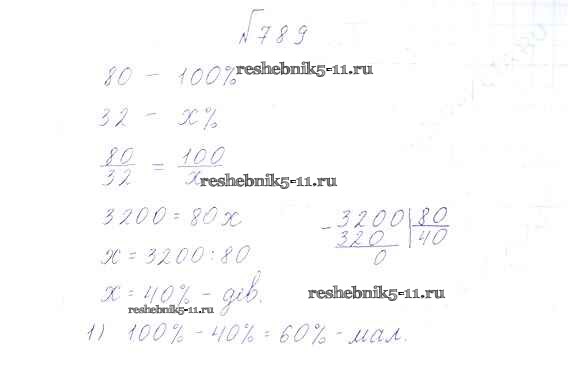 №789
80 – 100%
reshebnik5-11.ru
32 – x%
80/32 = 100/x
reshebnik5-11.ru
3200 = 80x
x = 3200 : 80
- 3200 | 80
320 | 40
0
x = 40% – дів.
reshebnik5-11.ru
reshebnik5-11.ru
1) 100% – 40% = 60% – мал.